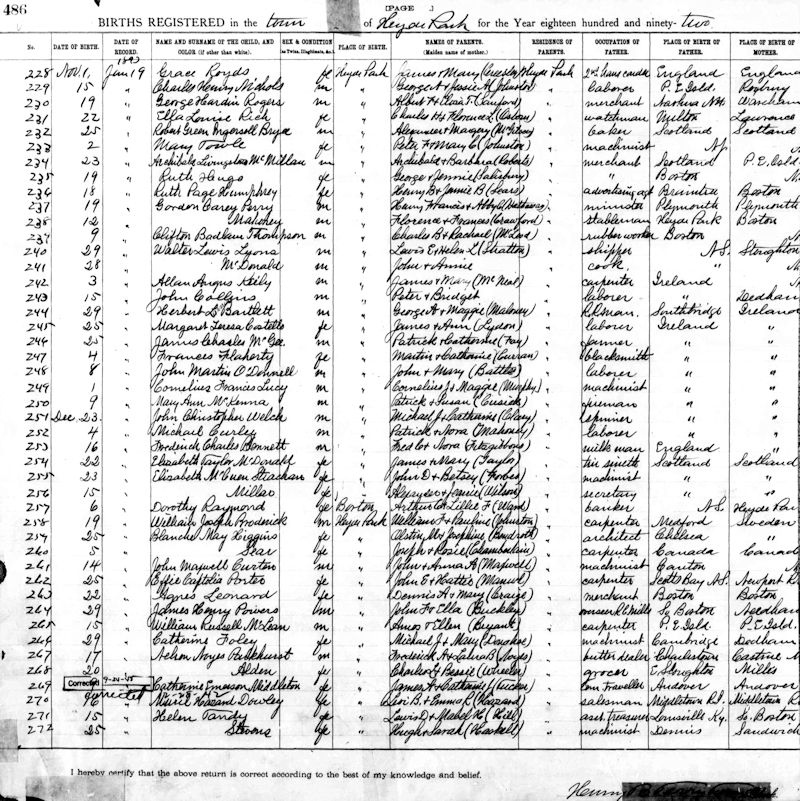 486
[PAGE ]
BIRTHS REGISTERED in the town of Hyde Park for the Year eighteen hundred and ninety-two
No. DATE OF BIRTH. DATE OF RECORD. NAME AND SURNAME OF THE CHILD, AND COLOR. (if other than white). SEX & CONDITION PLACE OF BIRTH. NAMES OF PARENTS. (Maiden name of mother.) RESIDENCE OF PARENTS. OCCUPATION OF FATHER. PLACE OF BIRTH OF FATHER. PLACE OF BIRTH OF MOTHER.
1893
228 Nov. 1, Jan 19 Grace Royds fe Hyde Park James & Mary Hyde Park England England
229 15 " Charles Henry Nichols m " George & Jessie A (Johnston) " laborer P. E. Isld. Roxbury
230 19 " George Hardin Rogers m " Albert H & Clara T. " merchant Wareham
231 22 " Ella Louise Rich fe " Charles H & Florence L " watchman Milton Lawrence
232 25 " Robert Green Ingersoll Bryce m " Alexander & Margary " baker Scotland Scotland
233 2 " Mary Towle fe " Peter & Mary C (Johnston) " machinist
234 23 " Archibald Livingston McMillan m " Archibald & Barbara (Roberts) " merchant Scotland P. E. Isld.
235 19 " Ruth Hugo fe " George & Jennie (Salisbury) " " Boston
236 18 " Ruth Page Humphrey fe " Henry B & Jennie B (Sears) " advertising agt Braintree Boston
237 19 " Gordon Carey Perry m " Henry Francis & Abby C (Hathaway) " minister Plymouth Plymouth
238 12 " Mahoney m " Florence & Frances (Crawford) " stableman Hyde Park Boston
239 9 " Clifton Badlam Thompson m " Charles B & Rachael (McLeod) " rubber worker Boston
240 29 " Walter Lewis Lyons m " Lewis E & Helen L (Stratton) " shipper N. S. Stoughton
241 28 " McDonald m " John & Annie " cook "
242 3 " Allan Angus Kiely m " James & Mary (McNeal) " carpenter Ireland
243 15 " John Collins m " Peter & Bridget " laborer " Dedham
244 29 " Herbert L Bartlett m " George A & Maggie (Maloney) " R.R. man Southbridge Ireland
245 25 " Margaret Teresa Costello fe " James & Ann (Lydon) " laborer Ireland "
246 25 " James Charles McGee m " Patrick & Catherine (Fay) " farmer " "
247 4 " Frances Flaherty fe " Martin & Catharine (Curran) " blacksmith " "
248 8 " John Martin O'Donnell m " John & Mary (Battles) " laborer " "
249 1 " Cornelius Francis Lucy m " Cornelius J & Maggie (Murphy) " machinist " "
250 9 " Mary Ann McKenna " Patrick & Susan (Cusick) " fireman " "
251 Dec. 23 " John Christopher Welch m " Michael J & Catharine (Clary) " spinner " "
252 4 " Michael Curley m " Patrick & Nora (Mahoney) " laborer " "
253 16 " Frederick Charles Bennett m " Fred & Nora (Fitzgibbons) " milk man England "
254 22 " Elizabeth Taylor McDonald fe " James & Mary (Taylor) " tin smith Scotland Scotland
255 23 " Elizabeth McEwen Strachan fe " John D & Betsey (Forbes) " machinist " "
256 15 " Millar fe " Alexander & Jennie (Wilson) " secretary " "
257 6 " Dorothy Raymond fe Boston Arthur C & Lillie F (Ward) " banker N. S. Hyde Park
258 19 " William Joseph Broderick m Hyde Park William F & Pauline (Johnston) " carpenter Medford Sweden
259 25 " Blanche May Higgins fe " " architect Chelsea "
260 5 " fe " Joseph & Rosie (Chamberlain) " carpenter Canada Canada
261 14 " John Maxwell Curtin m " John & Anna A (Maxwell) " machinist Canton
262 25 " Effie Capitolia Porter fe " John E & Hattie (Manuel) " carpenter Scotts Bay N.S. Newport
263 22 " Agnes Leonard fe " Dennis A & Mary (Craige) " merchant Boston Boston
264 29 " James Henry Powers m " John F & Ella (Buckley) " So. Boston Needham
265 15 " William Russell McLean m " Amos & Ellen (Bryant) " carpenter P. E. Isld. P. E. Isld.
266 29 " Catherine Foley fe " Michael J & Mary (Donahoe) " machinist Cambridge Dedham
267 17 " Nelson Noyes Parkhurst m " Frederick A & Laura B (Noyes) " butter dealer Charlestown Castine
268 20 " Alden fe " Charles L & Bessie (Wheeler) " grocer E. Stoughton Millis
269 Corrected 9-24-55 Catharine Emerson Middleton fe " James A & Catharine (Tucker) " com. traveller Andover Andover
270 Corrected 16 Hazzard Dowley fe " Levi B & Emma R (Hazzard) " salesman Middletown R.I. Middletown
271 15 " Helen Tandy fe " Lewis D & Mabel H (Hill) " asst. treasurer Louisville Ky. So. Boston
272 25 " Stevens fe " Hugh & Sarah (Haskell) " machinist Dennis Sandwich
I hereby certify that the above return is correct according to the best of my knowledge and belief.
Henry B.